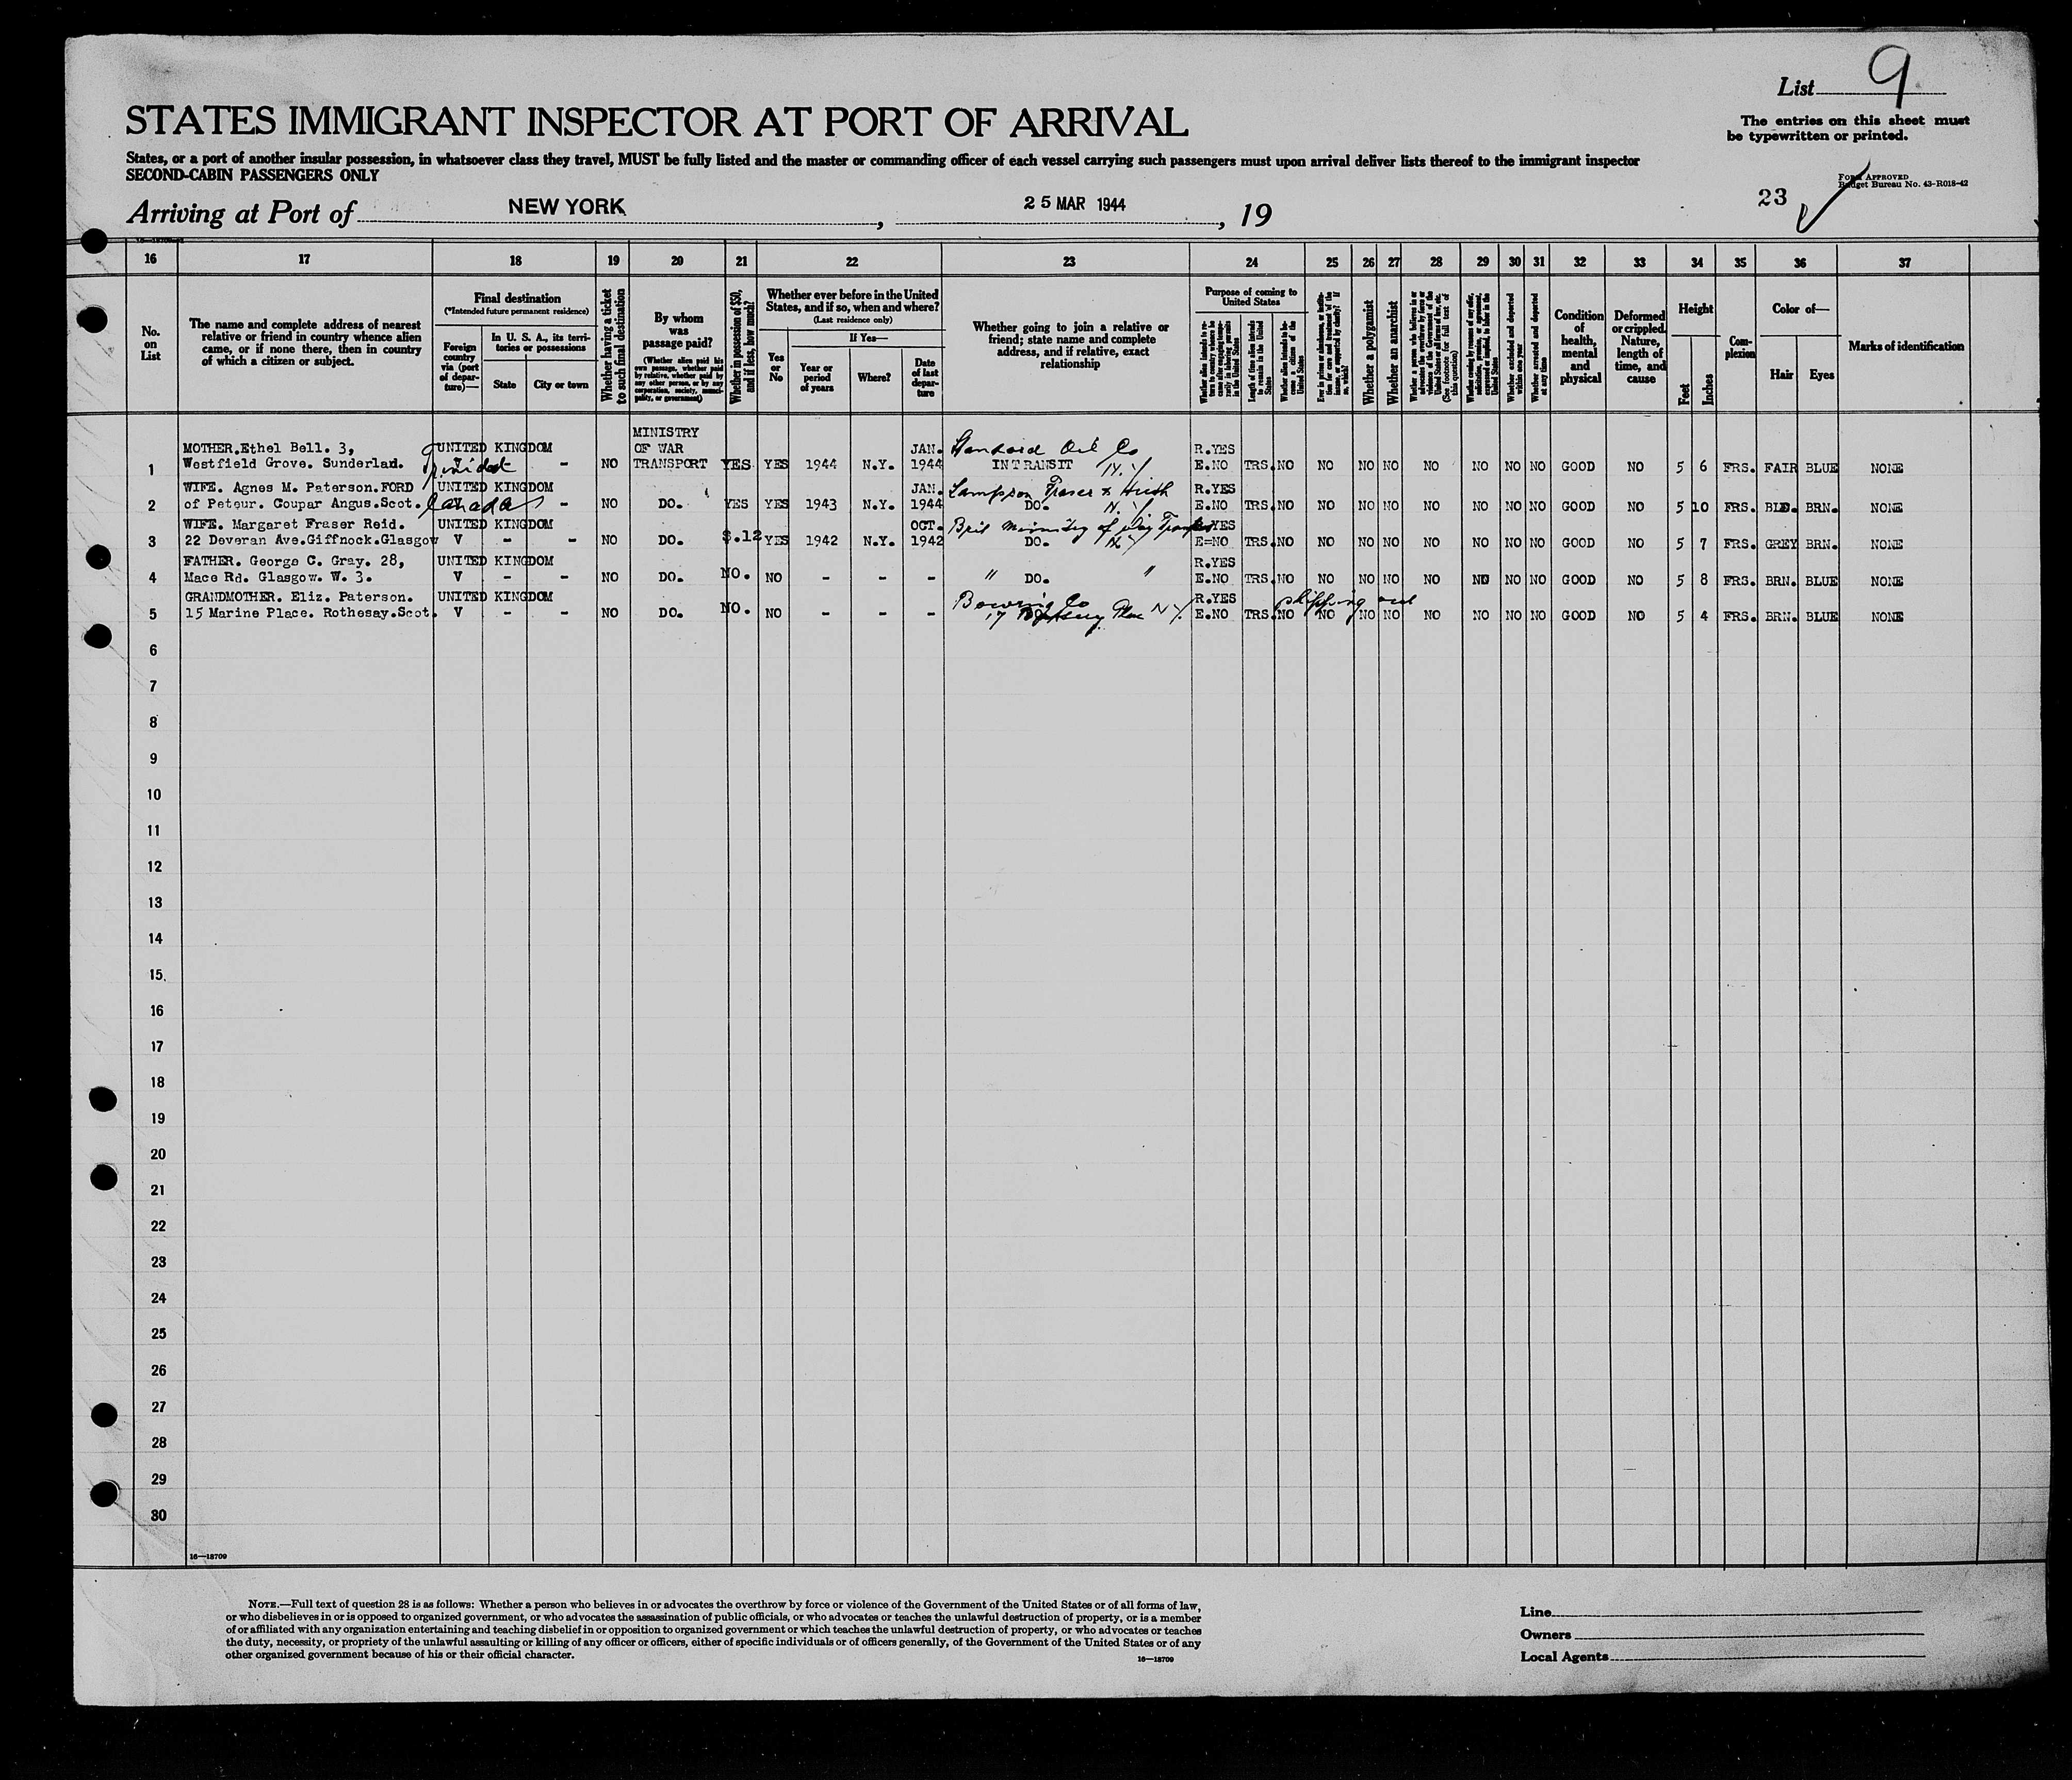 List 9
STATES IMMIGRANT INSPECTOR AT PORT OF ARRIVAL
The entries on this sheet must
be typewritten or printed.
States, or a port of another insular possession, in whatsoever class they travel, MUST be fully listed and the master or commanding officer of each vessel carrying such passengers must upon arrival deliver lists thereof to the immigrant inspector
SECOND-CABIN PASSENGERS ONLY
Form Approved
Budget Bureau No. 43-R018-42
23
Arriving at Port of NEW YORK, 25 MAR 1944, 19
16 17 18 19 20 21 22 23 24 25 26 27 28 29 30 31 32 33 34 35 36 37
No. on List
The name and complete address of nearest relative or friend in country whence alien came, or if none there, then in country of which a citizen or subject.
Final destination
(*Intended future permanent residence)
Foreign country via (port of departure)—
In U. S. A., its territories or possessions
State
City or town
Whether having a ticket to such final destination
By whom was passage paid?
(Whether alien paid his own passage, whether paid by relative, whether paid by any other person, or by any corporation, society, municipality, or government)
Whether in possession of $50, and if less, how much?
Whether ever before in the United States, and if so, when and where?
(Last residence only)
Yes or No
If Yes—
Year or period of years
Where?
Date of last departure
Whether going to join a relative or friend; state name and complete address, and if relative, exact relationship
Purpose of coming to United States
Length of time alien intends to remain in the United States
Whether alien intends to become a citizen of the United States
Whether a polygamist
Whether an anarchist
(See footnote for full text of this question)
Whether excluded and deported within one year
Whether arrested and deported at any time
Condition of health, mental and physical
Deformed or crippled. Nature, length of time, and cause
Height
Feet
Inches
Complexion
Color of—
Hair
Eyes
Marks of identification
MINISTRY
MOTHER.Ethel Bell. 3, UNITED KINGDOM OF WAR JAN. Standard Oil Co R.YES
1 Westfield Grove. Sunderlad. Trinidad - - NO TRANSPORT YES YES 1944 N.Y. 1944 IN TRANSIT N.Y E.NO TRS. NO NO NO NO NO NO NO NO GOOD NO 5 6 FRS. FAIR BLUE NONE
WIFE. Agnes M. Paterson.FORD UNITED KINGDOM JAN. Lampson Fraser & Huth R.YES
2 of Peteur. Coupar Angus.Scot. Canada - NO DO. YES YES 1943 N.Y. 1944 DO. N.Y E.NO TRS. NO NO NO NO NO NO NO NO GOOD NO 5 10 FRS. BLD. BRN. NONE
WIFE. Margaret Fraser Reid. UNITED KINGDOM OCT. Brit Ministry of War Transport R.YES
3 22 Deveran Ave.Giffnock.Glasgow V - - NO DO. $.12 YES 1942 N.Y. 1942 DO. N Y E=NO TRS. NO NO NO NO NO NO NO NO GOOD NO 5 7 FRS. GREY BRN. NONE
FATHER. George C. Gray. 28, UNITED KINGDOM R.YES
4 Mace Rd. Glasgow. W. 3. V - - NO DO. NO. NO - - - " DO. " E.NO TRS. NO NO NO NO NO NO NO NO GOOD NO 5 8 FRS. BRN. BLUE NONE
GRANDMOTHER. Eliz. Paterson. UNITED KINGDOM Bowring Co R.YES shipping
5 15 Marine Place. Rothesay.Scot. V - - NO DO. NO. NO - - - 17 Battery Place N Y. E.NO TRS. NO NO NO NO NO NO NO NO GOOD NO 5 4 FRS. BRN. BLUE NONE
6
7
8
9
10
11
12
13
14
15
16
17
18
19
20
21
22
23
24
25
26
27
28
29
80
16—18709
NOTE.—Full text of question 28 is as follows: Whether a person who believes in or advocates the overthrow by force or violence of the Government of the United States or of all forms of law,
or who disbelieves in or is opposed to organized government, or who advocates the assassination of public officials, or who advocates or teaches the unlawful destruction of property, or is a member
of or affiliated with any organization entertaining and teaching disbelief in or opposition to organized government or which teaches the unlawful destruction of property, or who advocates or teaches
the duty, necessity, or propriety of the unlawful assaulting or killing of any officer or officers, either of specific individuals or of officers generally, of the Government of the United States or of any
other organized government because of his or their official character.
16—18709
Line
Owners
Local Agents